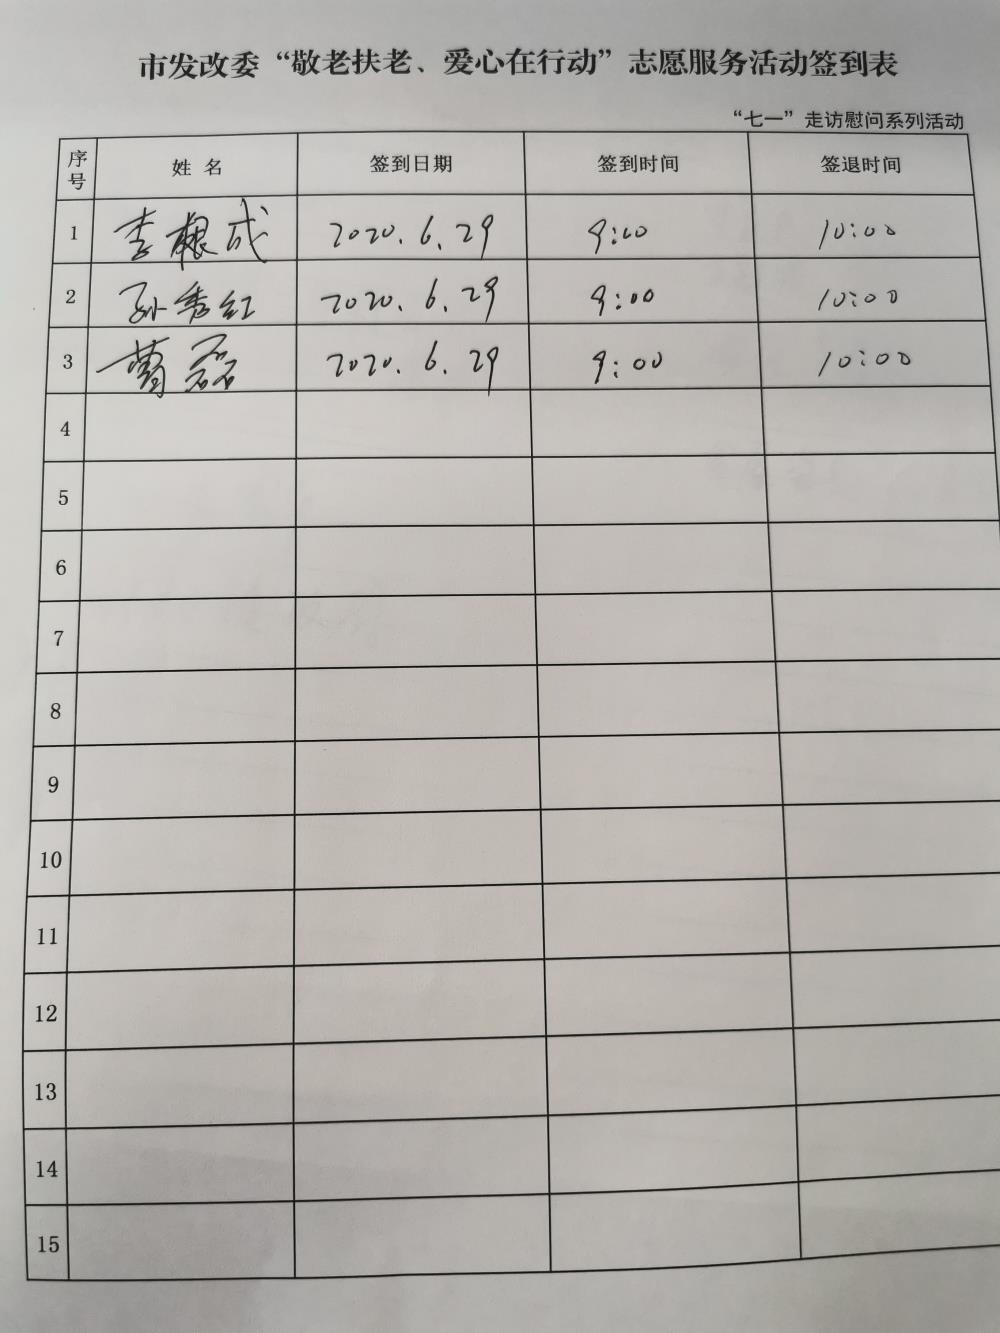 市发改委“敬老扶老、爱心在行动”志愿服务活动签到表
“七一”走访慰问系列活动
序号 姓 名 签到日期 签到时间 签退时间
1 李根成 2020.6.29 9:00 10:00
2 孙秀红 2020.6.29 9:00 10:00
3 曹磊 2020.6.29 9:00 10:00
4
5
6
7
8
9
10
11
12
13
14
15